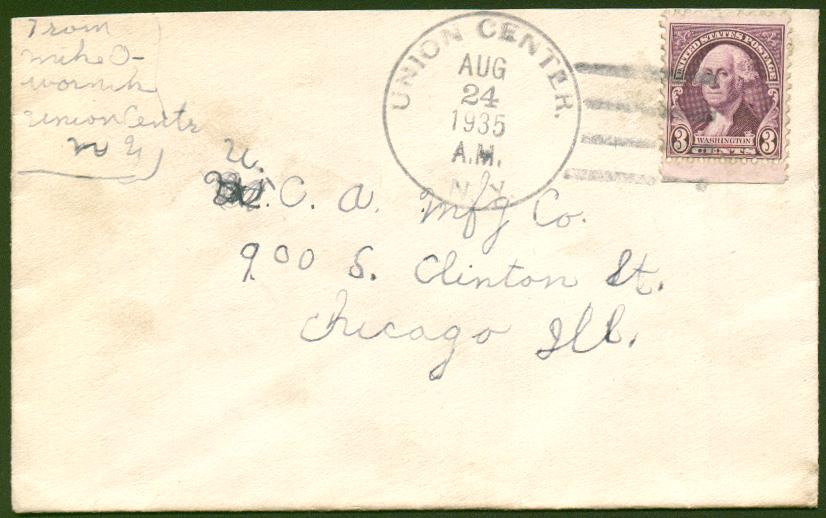 From
Mike O-
Union Centr
N Y
UNION CENTER.
AUG
24
1935
A.M.
N.Y.
UNITED STATES POSTAGE
3 WASHINGTON 3
CENTS
U.
C. A. Mfg Co.
900 S. Clinton St.
Chicago Ill.